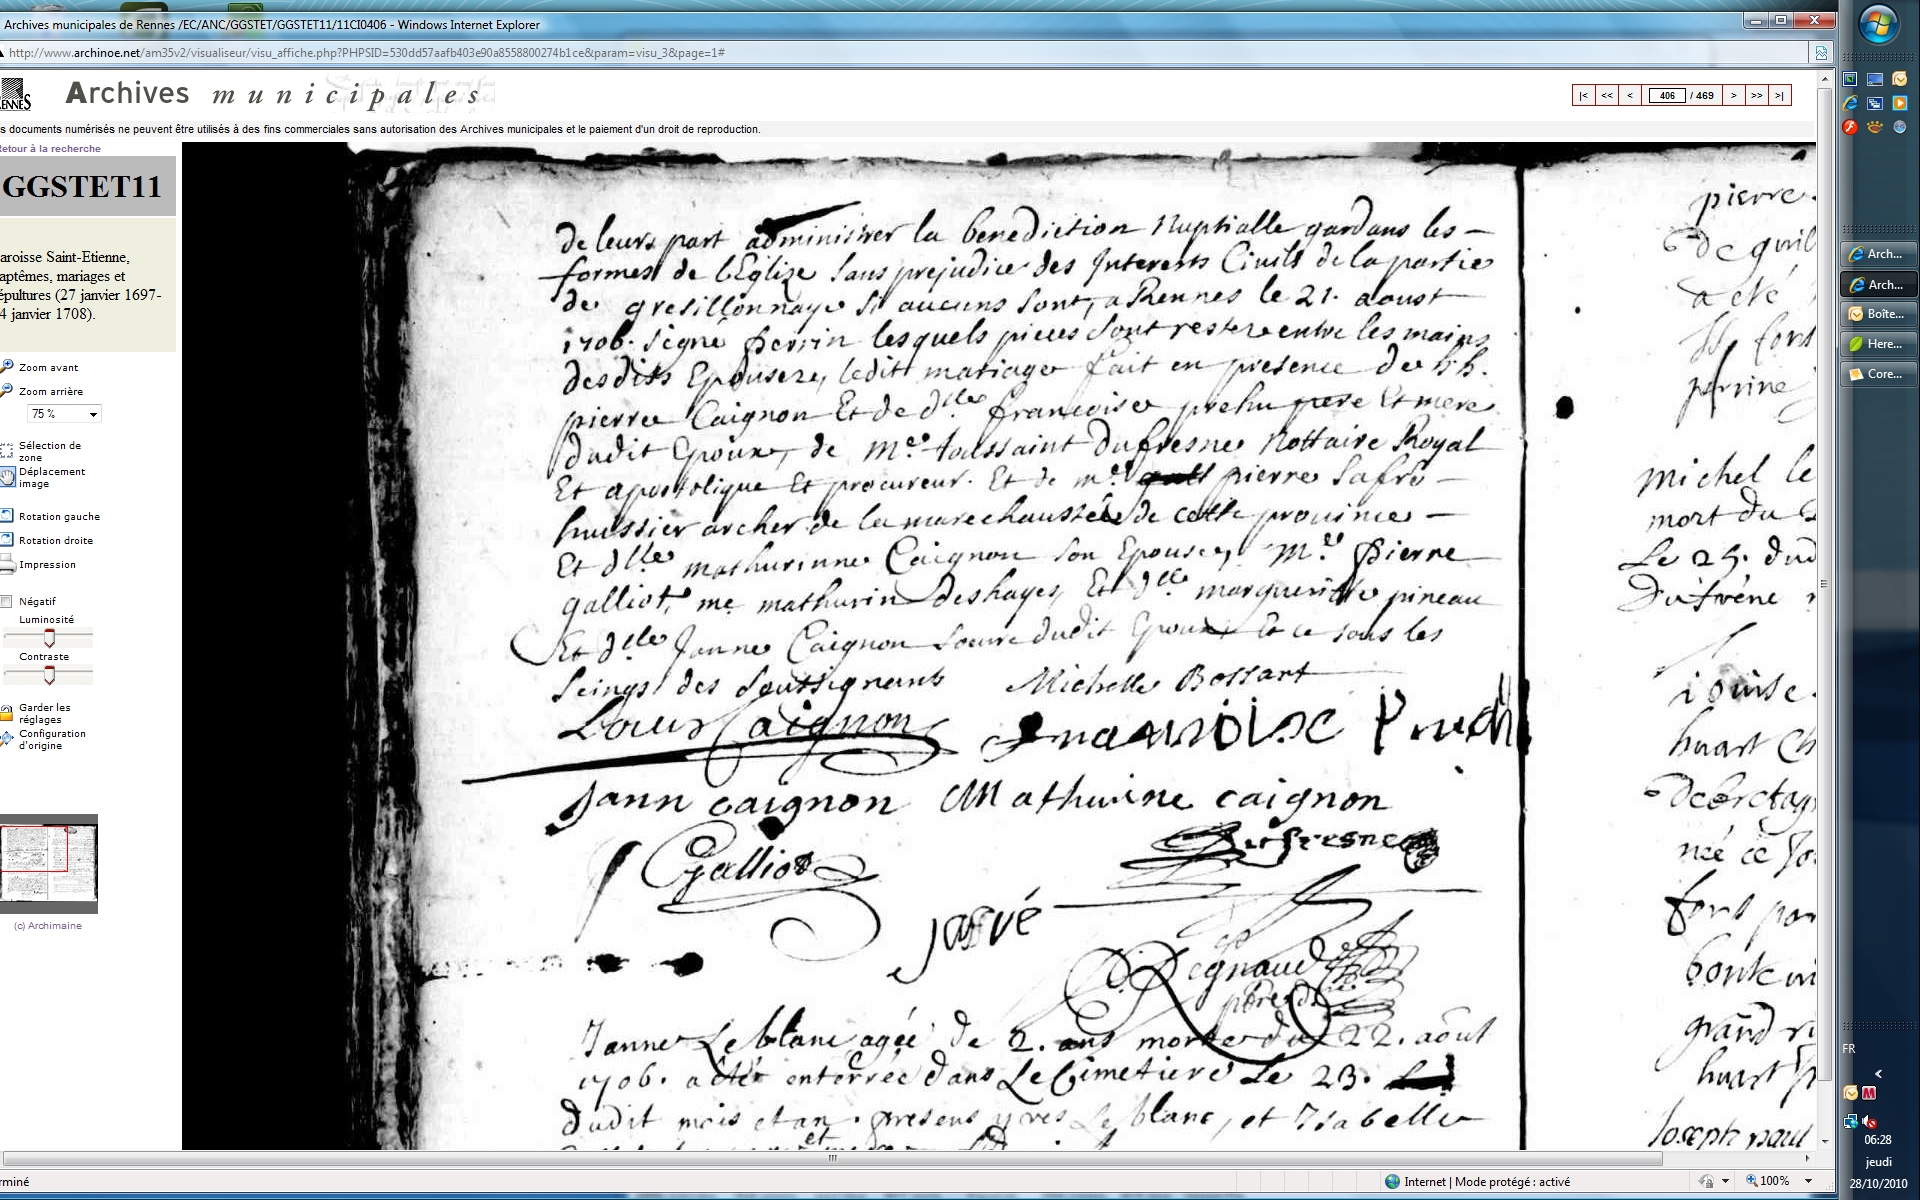 Archives municipales de Rennes /EC/ANC/GGSTET/GGSTET11/11CI0406 - Windows Internet Explorer
http://www.archinoe.net/am35v2/visualiseur/visu_affiche.php?PHPSID=530dd57aafb403e90a8558800274b1ce&param=visu_3&page=1#
RENNES
Archives municipales
|< << < 406 / 469 > >> >|
s documents numérisés ne peuvent être utilisés à des fins commerciales sans autorisation des Archives municipales et le paiement d'un droit de reproduction.
Retour à la recherche
GGSTET11
aroisse Saint-Etienne,
aptêmes, mariages et
épultures (27 janvier 1697-
4 janvier 1708).
Zoom avant
Zoom arrière
75 %
Sélection de
zone
Déplacement
image
Rotation gauche
Rotation droite
Impression
Négatif
Luminosité
Contraste
Garder les
réglages
Configuration
d'origine
(c) Archimaine
de leurs part administrer la benediction Nuptialle gardans les
formes de l'Eglize sans prejudice des Interests Civils de la partie
de gresillonnaye si aucuns sont, a Rennes le 21. aoust
1706. signé Perrin lesquels pieces sont restere entre les mains
desdits Epousere, ledit mariage fait en presence de hh.
pierre Caignon Et de dlle francoise prehu pere Et mere
dudit Epoux, de me toussaint dufresne Nottaire Royal
Et apostolique Et procureur. Et de me pierre Safré
huissier archer de la marechaussée de cette province
Et dlle mathurinne Caignon son Epouse, Me Pierre
galliot, me mathurin deshayes, Et dlle margueritte pineau
Et dlle Janne Caignon soeure dudit Epoux Et ce sous les
seings des soussignants Michelle Bossart
Louis Caignon francoise Preh
Jann caignon Mathurine caignon
Galliot Dufresne
Jaffré
Regnaud
Janne Le blanc agée de 2. ans morte du 22. aout
1706. a été enterrée dans Le Cimetiere Le 23.
dudit mois et an. presens yves Le blanc, et Isabelle
pierre
de guil
a été
fons
perrine
michel le
mort du
Le 25. dud
Dufréne
louise
huart Ch
de bretag
née ce Jo
fons par
grand
huart
Joseph paul
Arch...
Arch...
Boîte...
Here...
Core...
FR
06:28
jeudi
28/10/2010
rminé
Internet | Mode protégé : activé
100%